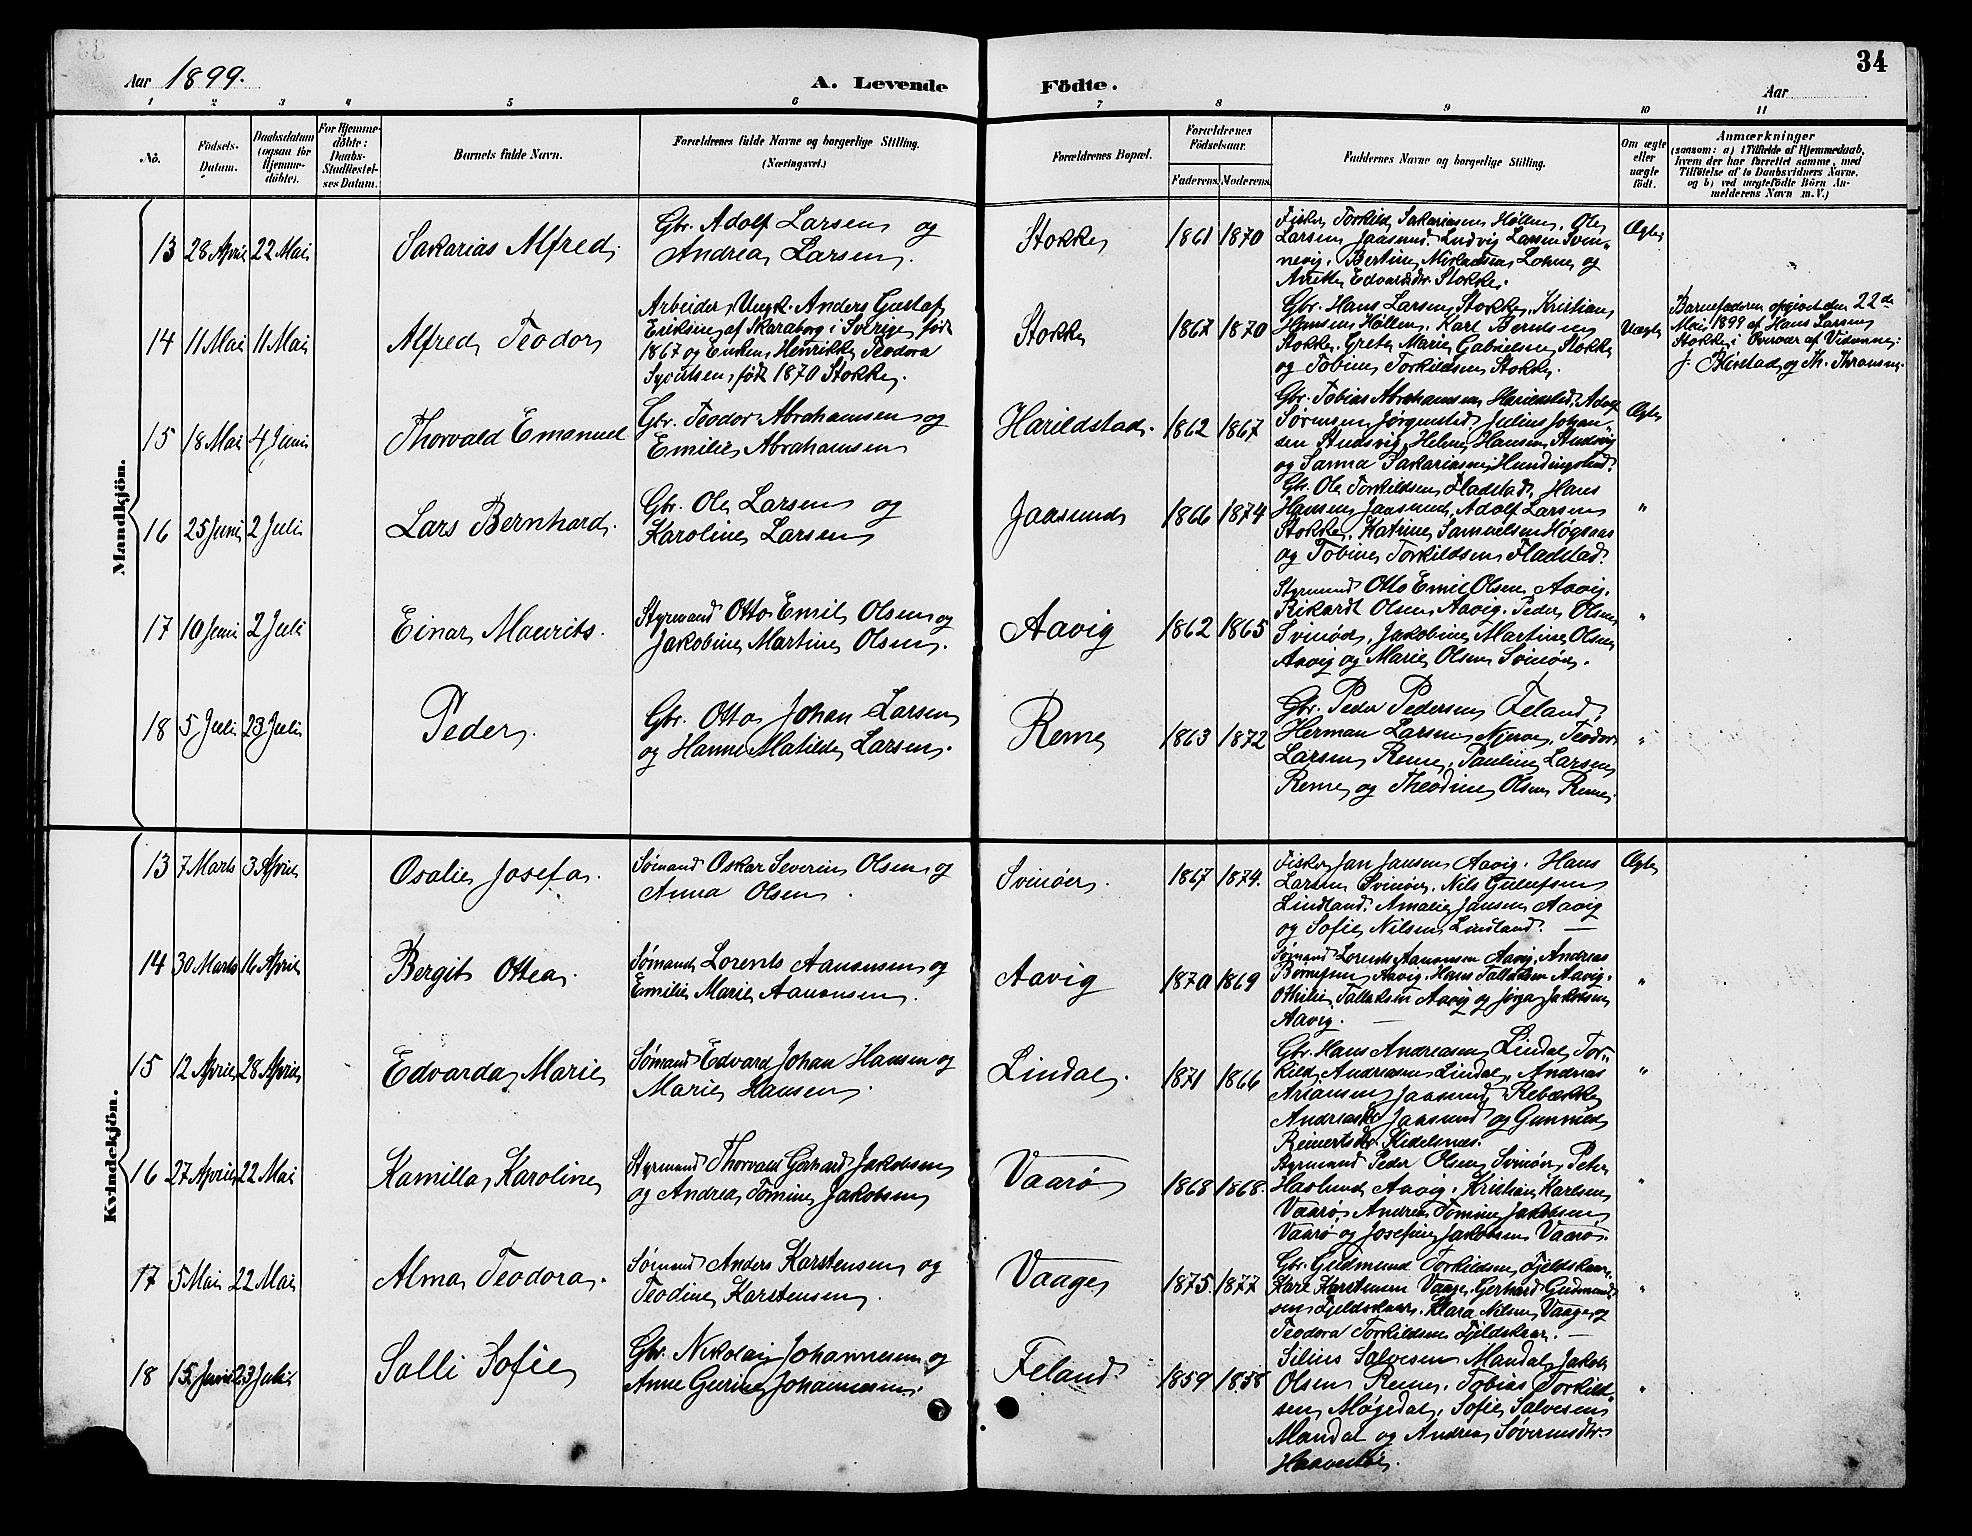 34
Aar 1899.
A. Levende Födte.
Aar
1 2 3 4 5 6 7 8 9 10 11
No.
Födsels-Datum.
Daabsdatum (ogsaa for Hjemme-döbte).
For Hjemme-döbte: Daabs-Stadfæstel-ses Datum.
Barnets fulde Navn.
Forældrenes fulde Navne og borgerlige Stilling. (Næringsvei.)
Forældrenes Bopæl.
Forældrenes Födselsaar.
Faderens. Moderens.
Faddernes Navne og borgerlige Stilling.
Om ægte eller uægte födt.
Anmærkninger
(saasom: a) i Tilfælde af Hjemmedaab,
hvem der har forrettet samme, med
Tilföielse af to Daabsvidners Navne,
og b) ved uægtefödte Börn An-
melderens Navn m.V.)
Mandkjön.
13 28 April 22 Mai
Sakarias Alfred.
Gbr. Adolf Larsen og
Andrea Larsen.
Stokke
1861 1870
Fisker Torkild Sakariasen Høllen, Ole
Larsen Jaasund. Ludvig Larsen Svin-
nevig. Bertine Mikalsen Lohne og
Anette Edvardsdr. Stokke.
Ægte
14 11 Mai 11 Mai
Alfred Teodor
Arbeider, Ungk. Anders Gustaf
Eriksen af Skaraborg i Sverige, født
1867 og Enken Henrikke Teodora
Syvertsen, født 1870 Stokke.
Stokke
1867 1870
Gbr. Hans Larsen Stokke, Kristian
Hansen Høllen, Karl Berntsen
Stokke. Grete Marie Gabrielsen Stokke
og Tobine Torkildsen Stokke.
Uægte
Barnefaderen opgivet den 22de
Mai 1899 af Hans Larsen
Stokke i Overvær af Vidnerne:
J. Blixstad og Th. Thransen.
15 18 Mai 4 Juni
Thorvald Emanuel
Gbr. Teodor Abrahamsen og
Emilie Abrahamsen
Harildstad.
1862 1867
Gbr. Tobias Abrahamsen Harildstad. Adolf
Sørensen Jørgenstad, Julius Johan-
sen Studsvig, Helene Hansen Studsvig
og Sanna Sakariasen Hundingsland.
Ægte
16 25 Juni 2 Juli
Lars Bernhard.
Gbr. Ole Larsen og
Karoline Larsen
Jaasund
1866 1874
Gbr. Ole Torkildsen Fladstad, Hans
Hansen Jaasund, Adolf Larsen
Stokke, Katrine Samuelsen Høgsaas
og Tobine Torkildsen Fladstad.
"
17 10 Juni 2 Juli
Einar Maurits.
Styrmand Otto Emil Olsen og
Jakobine Martine Olsen.
Aavig
1862 1865
Styrmand Otto Emil Olsen Aavig.
Rikardt Olsen Aavig. Peder Olsen
Svinøer, Jakobine Martine Olsen
Aavig og Marie Olsen Svinøer.
"
18 5 Juli 23 Juli
Peder.
Gbr. Otto Johan Larsen
og Hanne Matilde Larsen.
Reme
1863 1872
Gbr. Peder Pedersen Feland,
Herman Larsen Njerve, Teodor
Larsen Reme, Pauline Larsen
Reme og Theodine Olsen Reme.
"
Kvindekjön.
13 7 Marts 3 April
Osalie Josefa.
Sømand Oskar Severin Olsen og
Anna Olsen.
Svinøer.
1867 1874.
Fisker Jan Jansen Aavig. Hans
Larsen Svinøer. Nils Gulufsen
Lindland. Amalie Jansen Aavig
og Sofie Nilsen Lindland.
Ægte
14 30 Marts 16 April
Bergit Ottea.
Sømand Lorents Aanonsen og
Emilie Marie Aanonsen.
Aavig
1870 1869
Sømand Lorents Aanonsen Aavig. Andreas
Børresen Aavig. Hans Tallaksen Aavig.
Othilie Tallaksen Aavig og Jørga Jakobsen
Aavig.
"
15 12 April 28 April
Edvarda Marie
Sømand Edvard Johan Hansen og
Marie Hansen.
Lindal.
1871 1866
Gbr. Hans Andreasen Lindal, Tor-
kild Andreasen Lindal, Andreas
Ariansen Jaasund, Rebækka
Andreasdr. Jaasund og Gunnild
Reinertsdr. Kidelsnæs.
"
16 27 April 22 Mai
Kamilla Karoline
Styrmand Thorvald Gerhard Jakobsen
og Andrea Tomine Jakobsen
Vaarø
1868 1868.
Styrmand Peder Olsen Svinøer, Peter
Haslund Aavig. Kristian Karlsen
Vaarø, Andrea Tomine Jakobsen
Vaarø og Josefine Jakobsen Vaarø.
"
17 5 Mai 22 Mai
Alma Teodora.
Sømand Anders Karstensen og
Teodine Karstensen.
Vaage
1875. 1877
Gbr. Gudmund Torkildsen Fjeldskaar.
Karl Karstensen Vaage. Gerhard Gudmund-
sen Fjeldskaar. Klara Nilsen Vaage og
Teodora Torkildsen Fjeldskaar.
"
18 15 Juni 23 Juli
Salli Sofie
Gbr. Nikolai Johannesen og
Anne Gurine Johannesen.
Feland
1859 1858
Silius Salvesen Mandal, Jakob
Olsen Reme. Tobias Torkild-
sen Møgedal, Sofie Salvesen
Mandal og Andrea Søverensdtr.